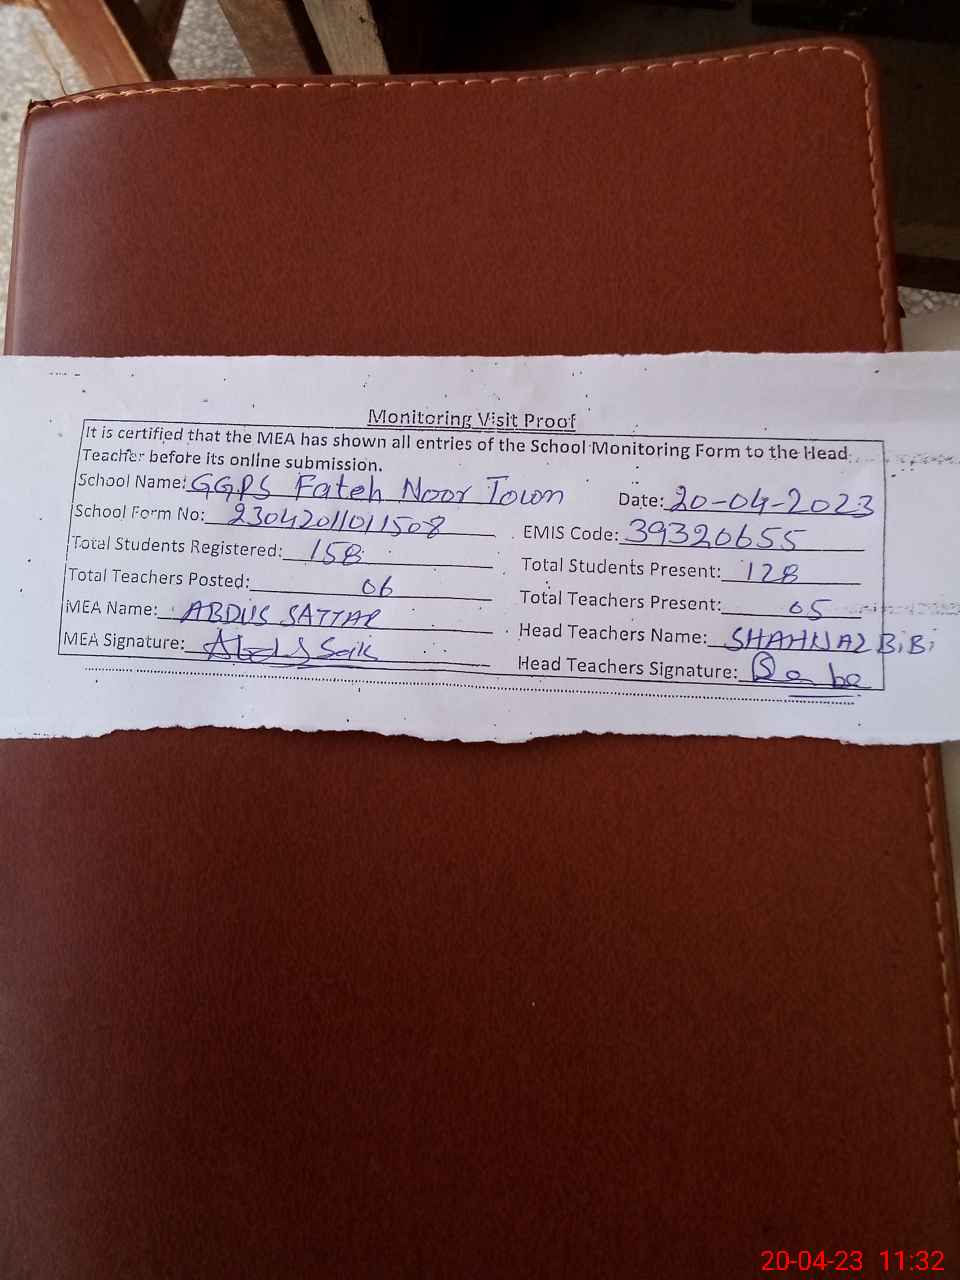 Monitoring Visit Proof
It is certified that the MEA has shown all entries of the School Monitoring Form to the Head
Teacher before its online submission.
School Name: GGPS Fateh Noor Town Date: 20-04-2023
School Form No: 23042011011508 EMIS Code: 39320655
Total Students Registered: 158 Total Students Present: 128
Total Teachers Posted: 06 Total Teachers Present: 05
MEA Name: ABDUS SATTAR Head Teachers Name: SHAHNAZ BiBi
MEA Signature: Head Teachers Signature:
20-04-23 11:32